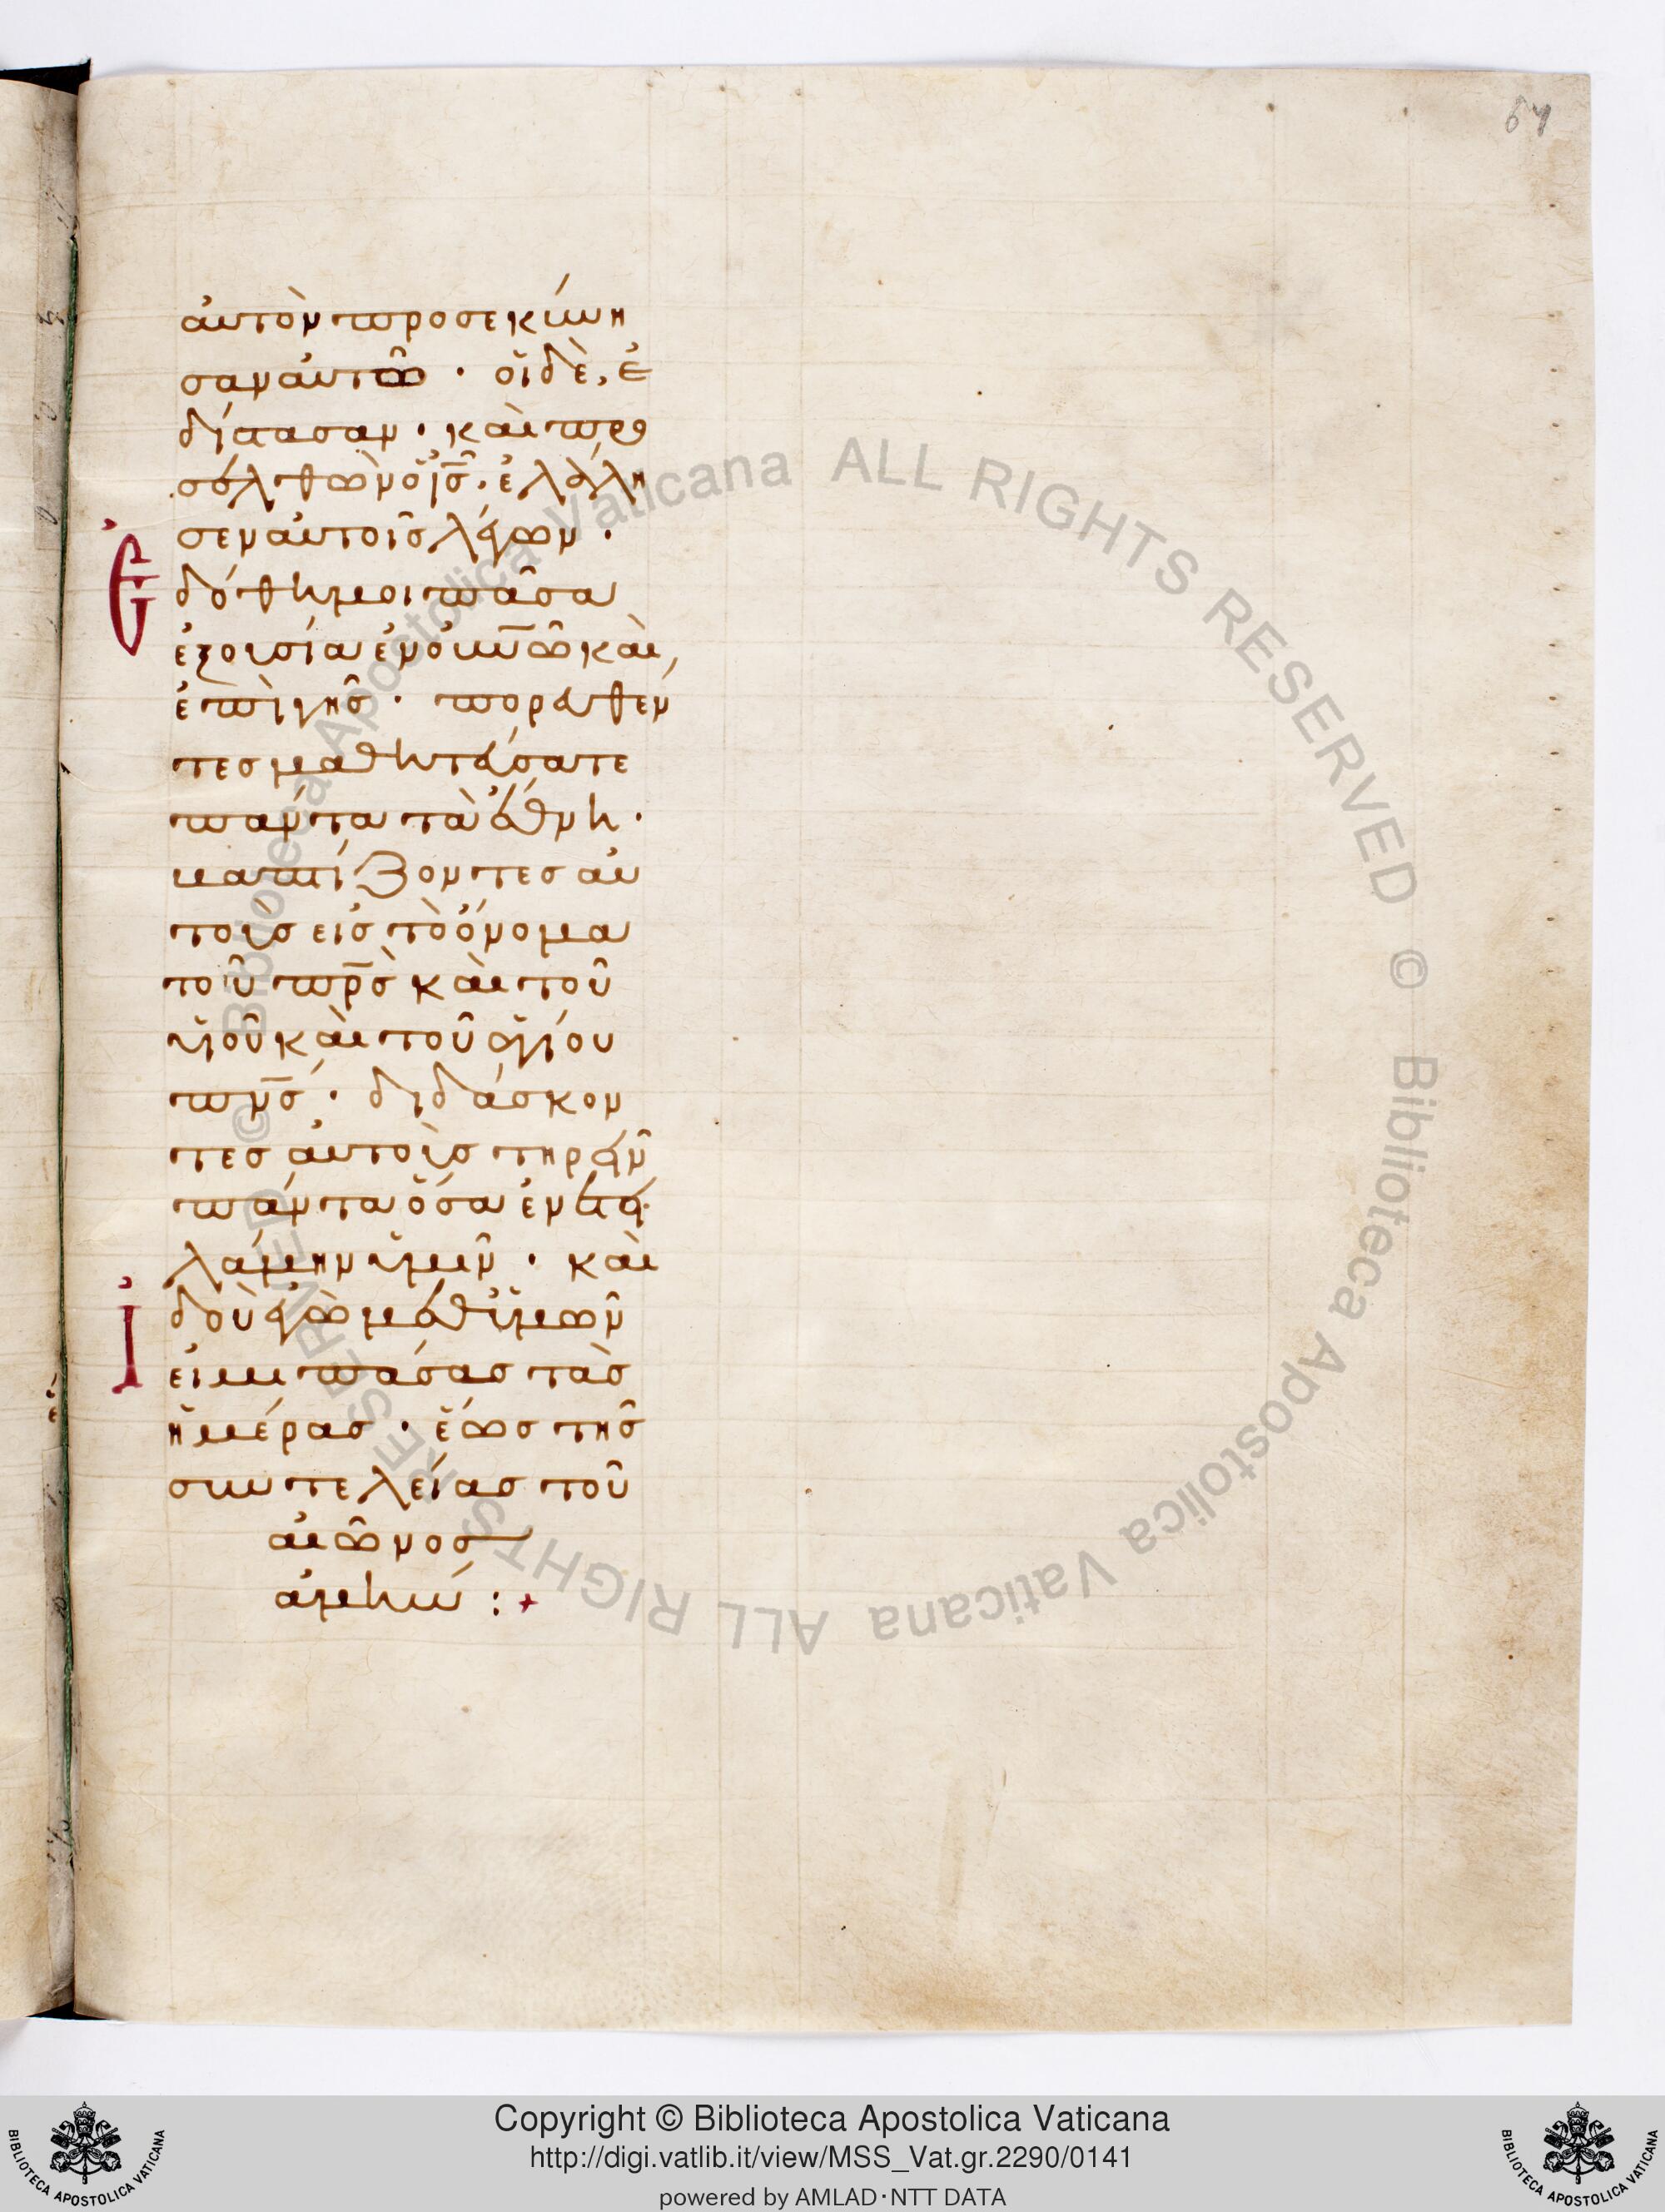 67
αὐτὸν προσεκύνη
σαν αὐτῶ · οἱ δὲ, ἐ
δίστασαν · καὶ προ
σελθὼν ὁ ι̅ς̅, ἐλάλη
σεν αὐτοῖς λέγων ·
Ἐδόθη μοι πᾶσα
ἐξουσία ἐν ου̅νω̅ καὶ,
ἐπὶ γῆς · πορευθέν
τες μαθητεύσατε
πάντα τὰ ἔθνη ·
βαπτίζοντες αὐ
τοὺς εἰς τὸ ὄνομα
τοῦ π̅ρ̅ς̅ καὶ τοῦ
υἱοῦ καὶ τοῦ ἁγίου
π̅ν̅ς̅ · διδάσκον
τες αὐτοὺς τηρεῖν
πάντα ὅσα ἐνετει
λάμην ὑμῖν · καὶ
Ἰδοὺ ἐγὼ μεθ' ὑμῶν
εἰμι πάσας τὰς
ἡμέρας · ἕως τῆς
συντελείας τοῦ
αἰῶνος
ἀμήν : +
© Biblioteca Apostolica Vaticana ALL RIGHTS RESERVED © Biblioteca Apostolica Vaticana ALL RIGHTS RESERVED
Copyright © Biblioteca Apostolica Vaticana
http://digi.vatlib.it/view/MSS_Vat.gr.2290/0141
powered by AMLAD·NTT DATA
BIBLIOTECA APOSTOLICA VATICANA
BIBLIOTECA APOSTOLICA VATICANA